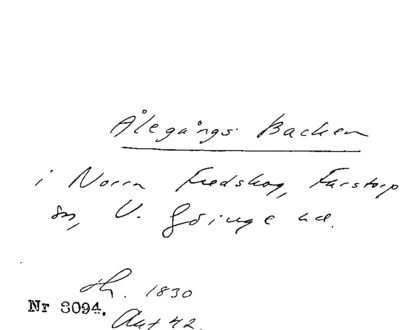 Ålegångs Backen
i Norra Fredskog, Farstorp
sn, V. Göinge hd.
th. 1830
Nr 3094. Aut 42.